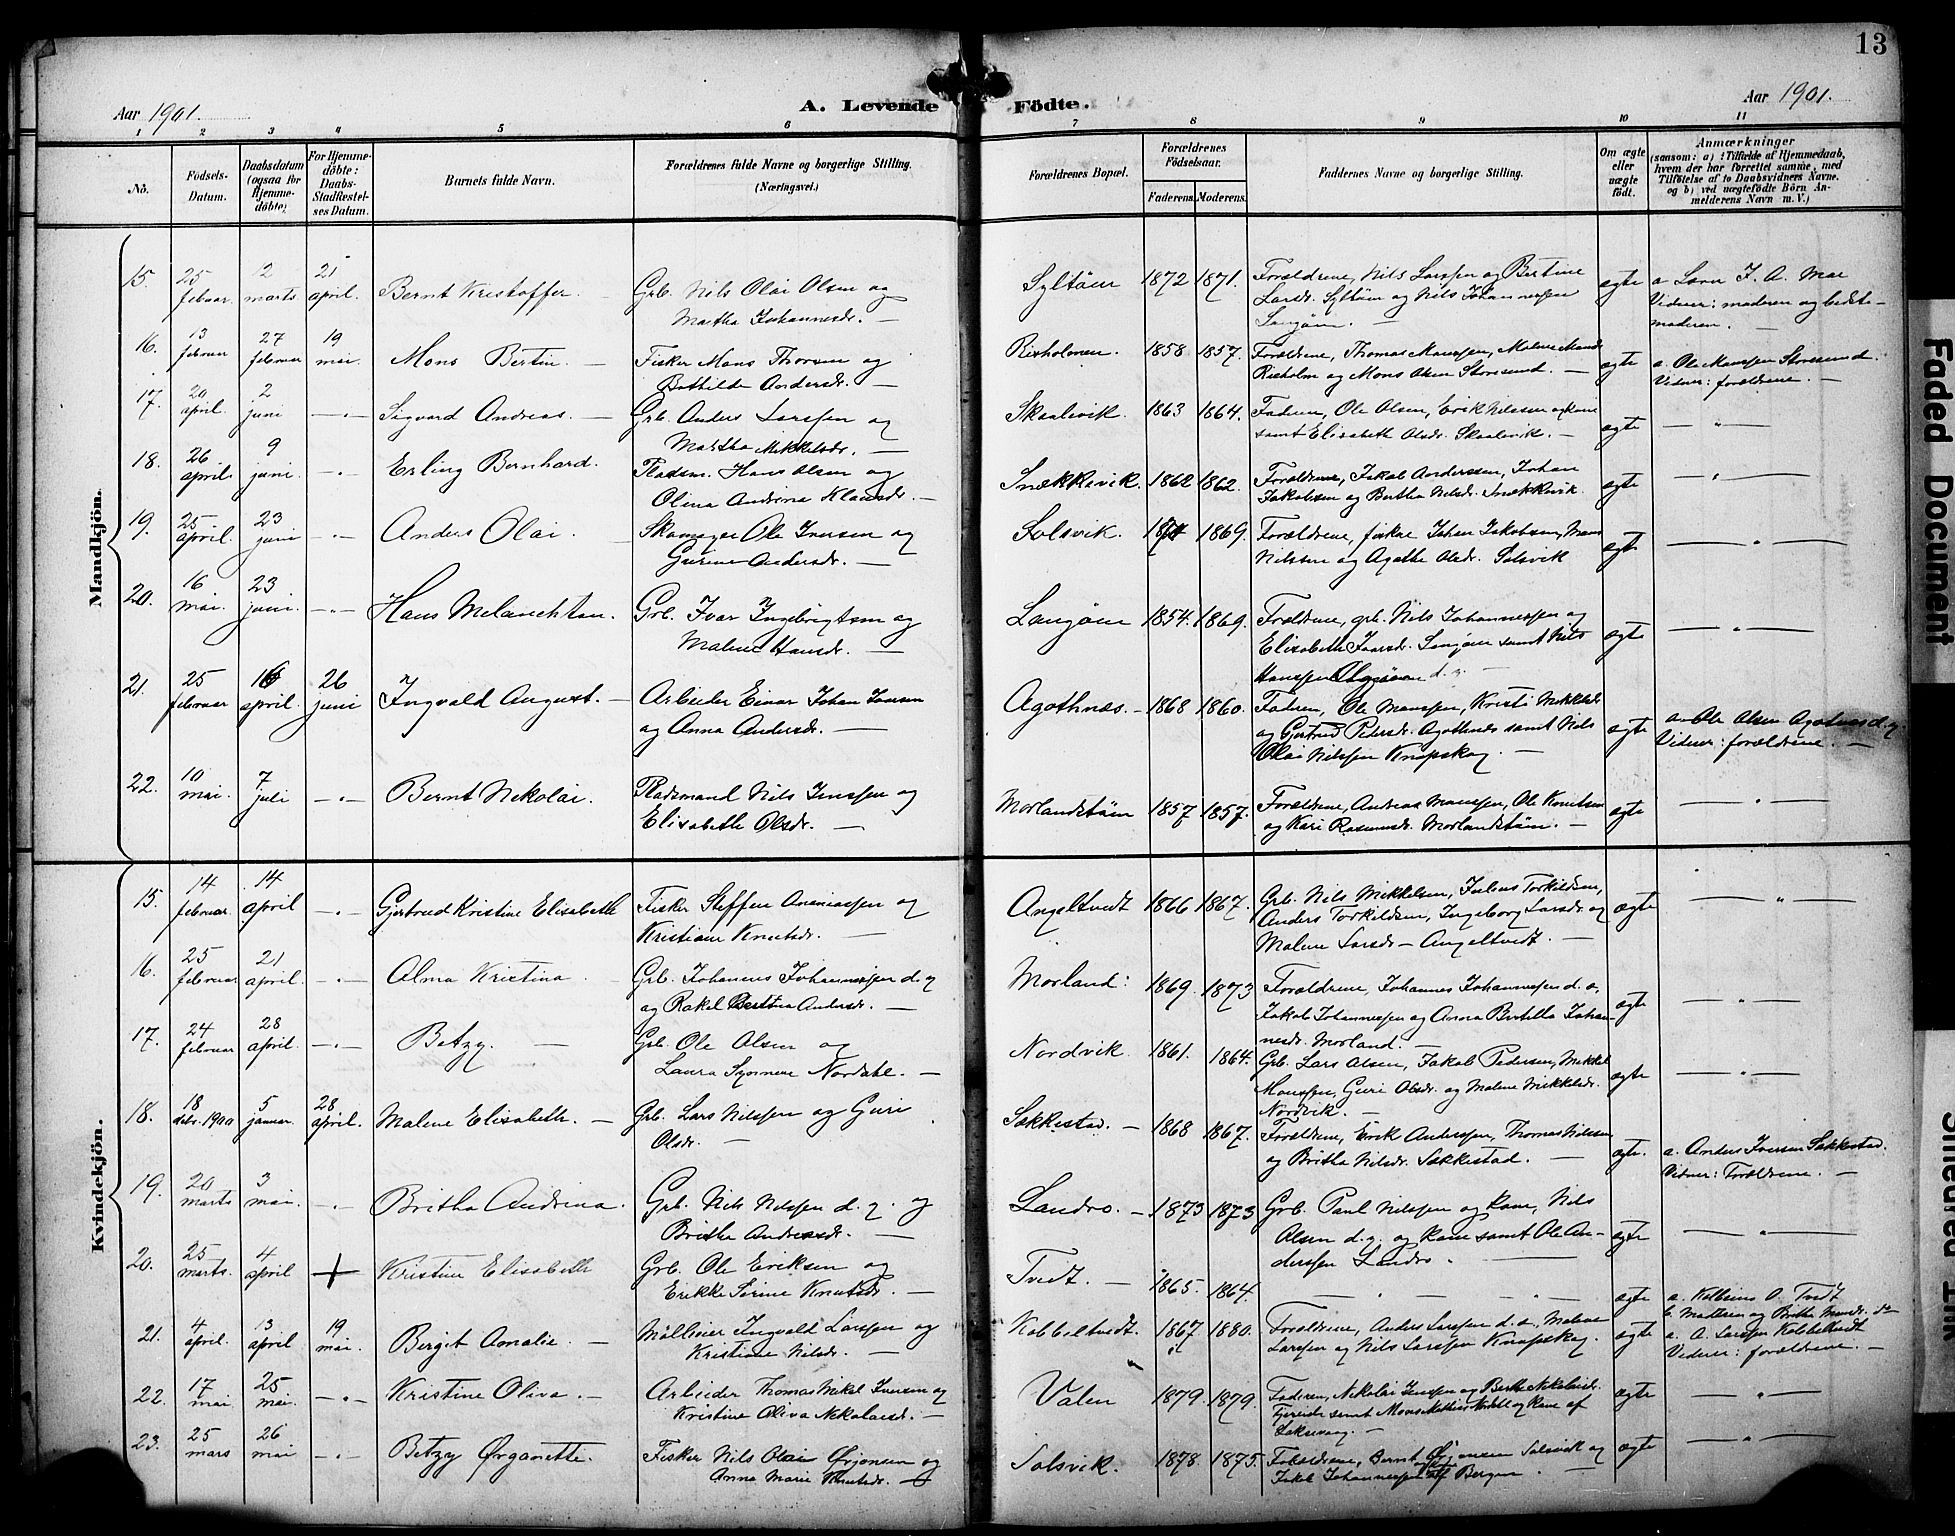 13
Aar 1901.
A. Levende Födte.
Aar 1901.
1 2 3 4 5 6 7 8 9 10 11
No.
Födsels-Datum.
Daabsdatum (ogsaa for Hjemme-döbte)
For Hjemme-döbte: Daabs-Stadfæstel-ses Datum.
Barnets fulde Navn.
Forældrenes fulde Navne og borgerlige Stilling.
(Næringsvei.)
Forældrenes Bopæl.
Forældrenes Födselsaar.
Faderens. Moderens.
Faddernes Navne og borgerlige Stilling.
Om ægte eller uægte födt.
Anmærkninger
(saasom: a) i Tilfælde af Hjemmedaab,
hvem der har forrettet samme, med
Tilföielse af to Daabsvidners Navne.
og b) ved uægtefödte Börn An-
melderens Navn m. V.)
Mandkjön.
15. 25 februar. 12 marts. 21 april. Bernt Kristoffer. Grb. Nils Olai Olsen og
Martha Johannesdr. —
Syltöen 1872 1871. Forældrene, Nils Larssen og Bertine
Larsdr. Syltöen og Nils Johannessen
Langöen. —
ægte
Vidner: moderen og bedste-
moderen. —
16. 13 februar 27 februar 19 mai. Mons Bertin. — Fisker Mons Thorsen og
Bothilde Andersdr. —
1858 1857. Forældrene, Thomas Monssen, Malene Monsdr.
og Mons Olsen Storesund. —
ægte a. Ole Monssen Storesund.
Vidner: forældrene. —
17. 20 april. 2 juni — " — Sigvard Andreas. — Grb. Anders Larssen og
Martha Mikkelsdr. —
Skaalevik. 1863 1864. Faderen, Ole Olsen, Erik Nilssen og kone
samt Elisabeth Olsdr. Skaalevik. —
ægte — " —
18. 26 april. 9 juni. — " — Erling Bernhard. Pladsm. Hans Olsen og
Olina Andrina Klausdr. —
Snekkevik. 1862 1862. Forældrene, Jakob Anderssen, Johan
Jakobsen og Bertha Nilsdr. Snekkevik
ægte — " —
19. 25 april. 23 juni — " — Anders Olai. — Skomager Ole Iversen og
Gurine Andersdr. —
Solsvik. 1869. Forældrene, fiskere Johan Jakobsen, Mons
Nilssen og Agathe Olsdr. Solsvik
ægte — " —
20. 16 mai. 23 juni. — " — Hans Melanchton. Grb. Ivar Ingebrigtsen og
Malene Hansdr. —
Langöen 1854. 1869. Forældrene, grb. Nils Johannessen og
Elisabeth Iversdr. Langöen samt Nils
Hanssen
ægte — " —
21. 25 februar april. 26 juni Ingvald August. — Arbeider Einar Johan Iversen
og Anna Andersdr. —
Agothnæs. — 1868 1860. Faderen, Ole Monssen, Kristi Mikkelsdr.
og Gjertrud Pedersdr. Agothnæs samt Nils
Olai Nilssen Knapskog —
ægte a. Ole Olsen Agotnæs d.y.
Vidner: forældrene. —
22. 10 mai. 7 juli — " — Bernt Nikolai. Pladsmand Nils Jenssen og
Elisabeth Olsdr. —
Morlandstöen 1857 1857. Forældrene, Andreas Monssen, Ole Knutsen
og Kari Rasmusdr. Morlandstöen. —
ægte — " —
Kvindekjön.
15. 14 februar. 14 april — " — Gjertrud Kristine Elisabeth Fisker Steffen Ananiassen og
Kristiane Knutsdr. —
Angeltvedt 1866 1867. Grb. Nils Mikkelsen, Julius Torkildsen,
Anders Torkildsen, Ingeborg Larsdr. og
Malene Larsdr — Angeltvedt. —
ægte — " —
16. 25 februar 21 april. — " — Alma Kristina. Grb. Johannes Johannessen d. y
og Rakel Andersdr. —
Morland: 1869. 1873 Forældrene, Johannes Johannessen d. æ,
Jakob Johannessen og Anna Botilla Johan-
nesdr. Morland. —
ægte — " —
17. 24 februar 28 april. — " — Betzy. — Grb. Ole Olsen og
Laura Synneve Nordahl. —
Nordvik. 1861. 1864. Grb. Lars Olsen, Jakob Pedersen, Mikkel
Monssen, Guri Olsdr. og Malene Mikkelsdr.
Nordvik. —
ægte — " —
18. 18 debr. 1900 5 januar. 28 april. Malene Elisabeth. — Grb. Lars Nilssen og Guri
Olsdr. —
Sækkestad. — 1868 1867. Forældrene, Erik Anderssen, Thomas Nilssen
og Britha Nilsdr. Sækkestad. —
ægte. a. Anders Iversen Sækkestad.
Vidner: Forældrene. —
19. 20 marts 3 mai. — " — Britha Andrina. Grb. Nils Nilssen d. y. og
Brithe Andersdr. —
Landro. — 1873 1873 Grb. Paul Nilssen og kone, Nils
Olsen d.y. og kone samt Ole An-
derssen Landro.
ægte — " —
20. 25 marts. 4 april + Kristine Elisabeth Grb. Ole Eriksen og
Erikke Sirine Knutsdr. —
Tvedt. — 1865. 1864. — " — " — ægte Tvedt
21. 4 april. 13 april 19 mai. Bergit Amalie. — Mölleier Ingvald Larssen og
Kristiane Nilsdr. —
Kobbeltvedt. 1867 1880. Forældrene, Anders Larssen d. æ, Malene
Larssen og Nils Larssen Knapskog.
ægte a. A. Larssen Kobbeltvedt
Vidner: forældrene. —
22. 17 mai 25 mai. — " — Kristine Oliva. — Arbeider Thomas Mikal Iversen og
Kristine Oliva Nikolaisdr. —
Valen 1879. 1879. Faderen, Nikolai Jenssen og Berthe Nikolaisdr.
samt Mons og kone af
ægte — " —
23. 25 mars 26 mai — " — Betzy Ørganette. Fisker Nils Olai Ørjansen og
Anna Marie Knutsdr. —
Solsvik. 1878 1875. Forældrene, Bernt Solsvik og
Jakob Johannessen af Bergen. —
ægte — " —
Faded Document
Smeared Ink